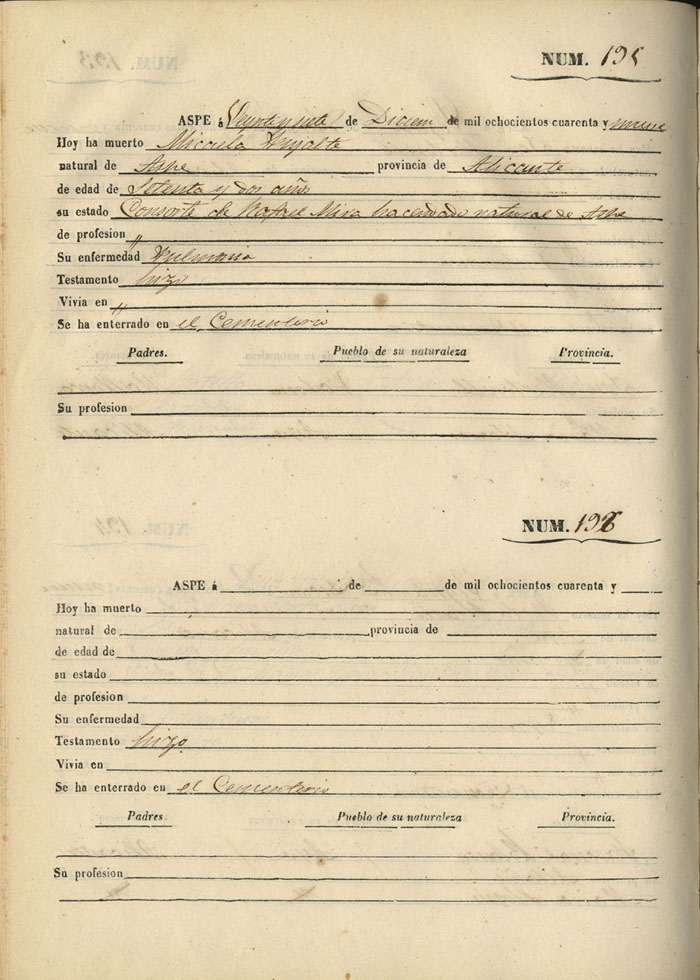 NUM. 195
ASPE á Veynte y siete de Diciem de mil ochocientos cuarenta y nueve
Hoy ha muerto Micaela
natural de Aspe provincia de Alicante
de edad de Setenta y dos años
su estado Consorte de Rafael Mira hacendado natural de Aspe
de profesion "
Su enfermedad Pulmonia
Testamento hizo
Vivia en "
Se ha enterrado en el Cementerio
Padres. Pueblo de su naturaleza Provincia.
Su profesion
NUM. 196
ASPE á de de mil ochocientos cuarenta y
Hoy ha muerto
natural de provincia de
de edad de
su estado
de profesion
Su enfermedad
Testamento hizo
Vivia en
Se ha enterrado en el Cementerio
Padres. Pueblo de su naturaleza Provincia.
Su profesion